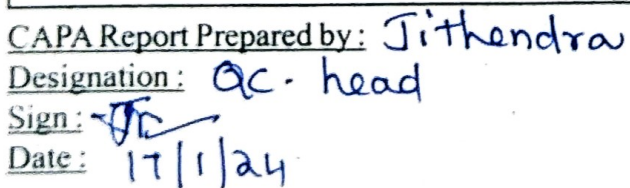 CAPA Report Prepared by : Jithendra
Designation : QC. head
Sign :
Date : 17/1/24